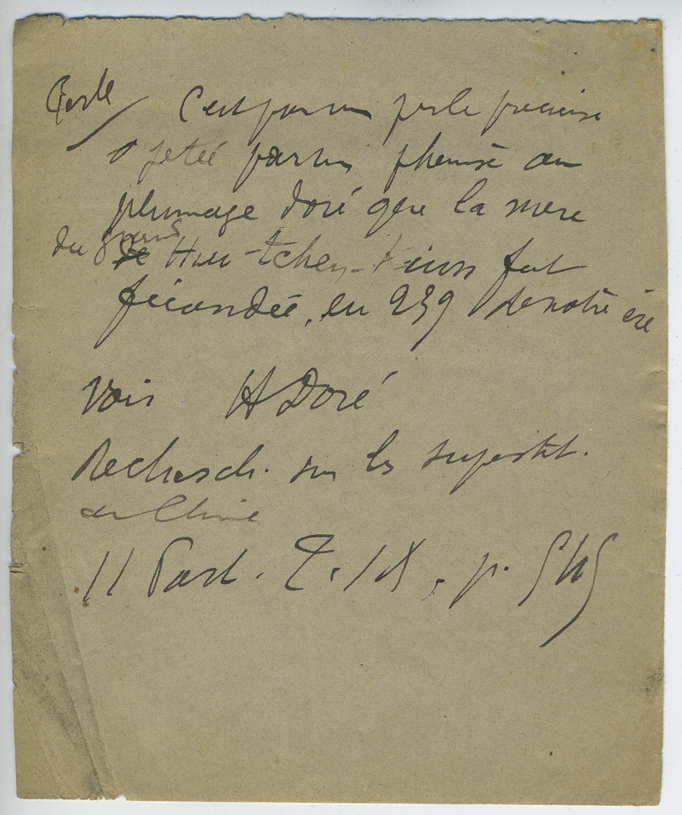 Perle
C'est par une perle précieuse
jetée par un phénix au
plumage doré que la mère
du grand Hiu-tchen-kiun fut
fécondée, en 239 de notre ère
Voir H Doré
Recherch. sur les superstit.
en Chine
II Part. T. IX, p.